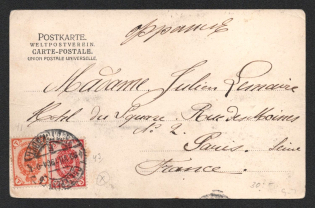 Франція
POSTKARTE.
WELTPOSTVEREIN.
CARTE-POSTALE.
UNION POSTALE UNIVERSELLE.
Madame Julien Lemaire
Hotel du Square Rue des Moines
No 2.
Paris. Seine
France.